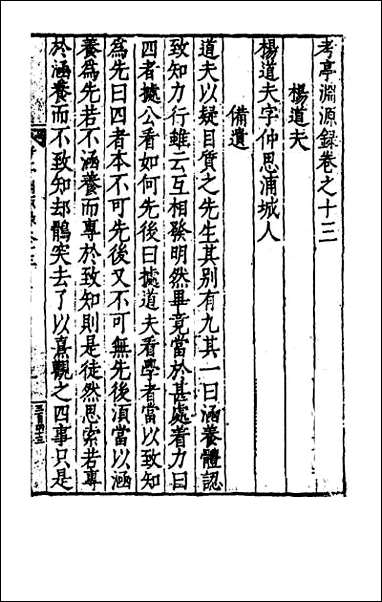 考亭淵源録卷之十三
楊道夫
楊道夫字仲思浦城人
備遺
道夫以疑目質之先生其别有九其一曰涵養體認
致知力行雖云互相發明然畢竟當於甚處着力曰
四者據公看如何先後曰據道夫看學者當以致知
爲先曰四者本不可先後又不可無先後湏當以涵
養爲先若不涵養而專於致知則是徒然思索若專
於涵養而不致知却鶻突去了以熹觀之四事只是